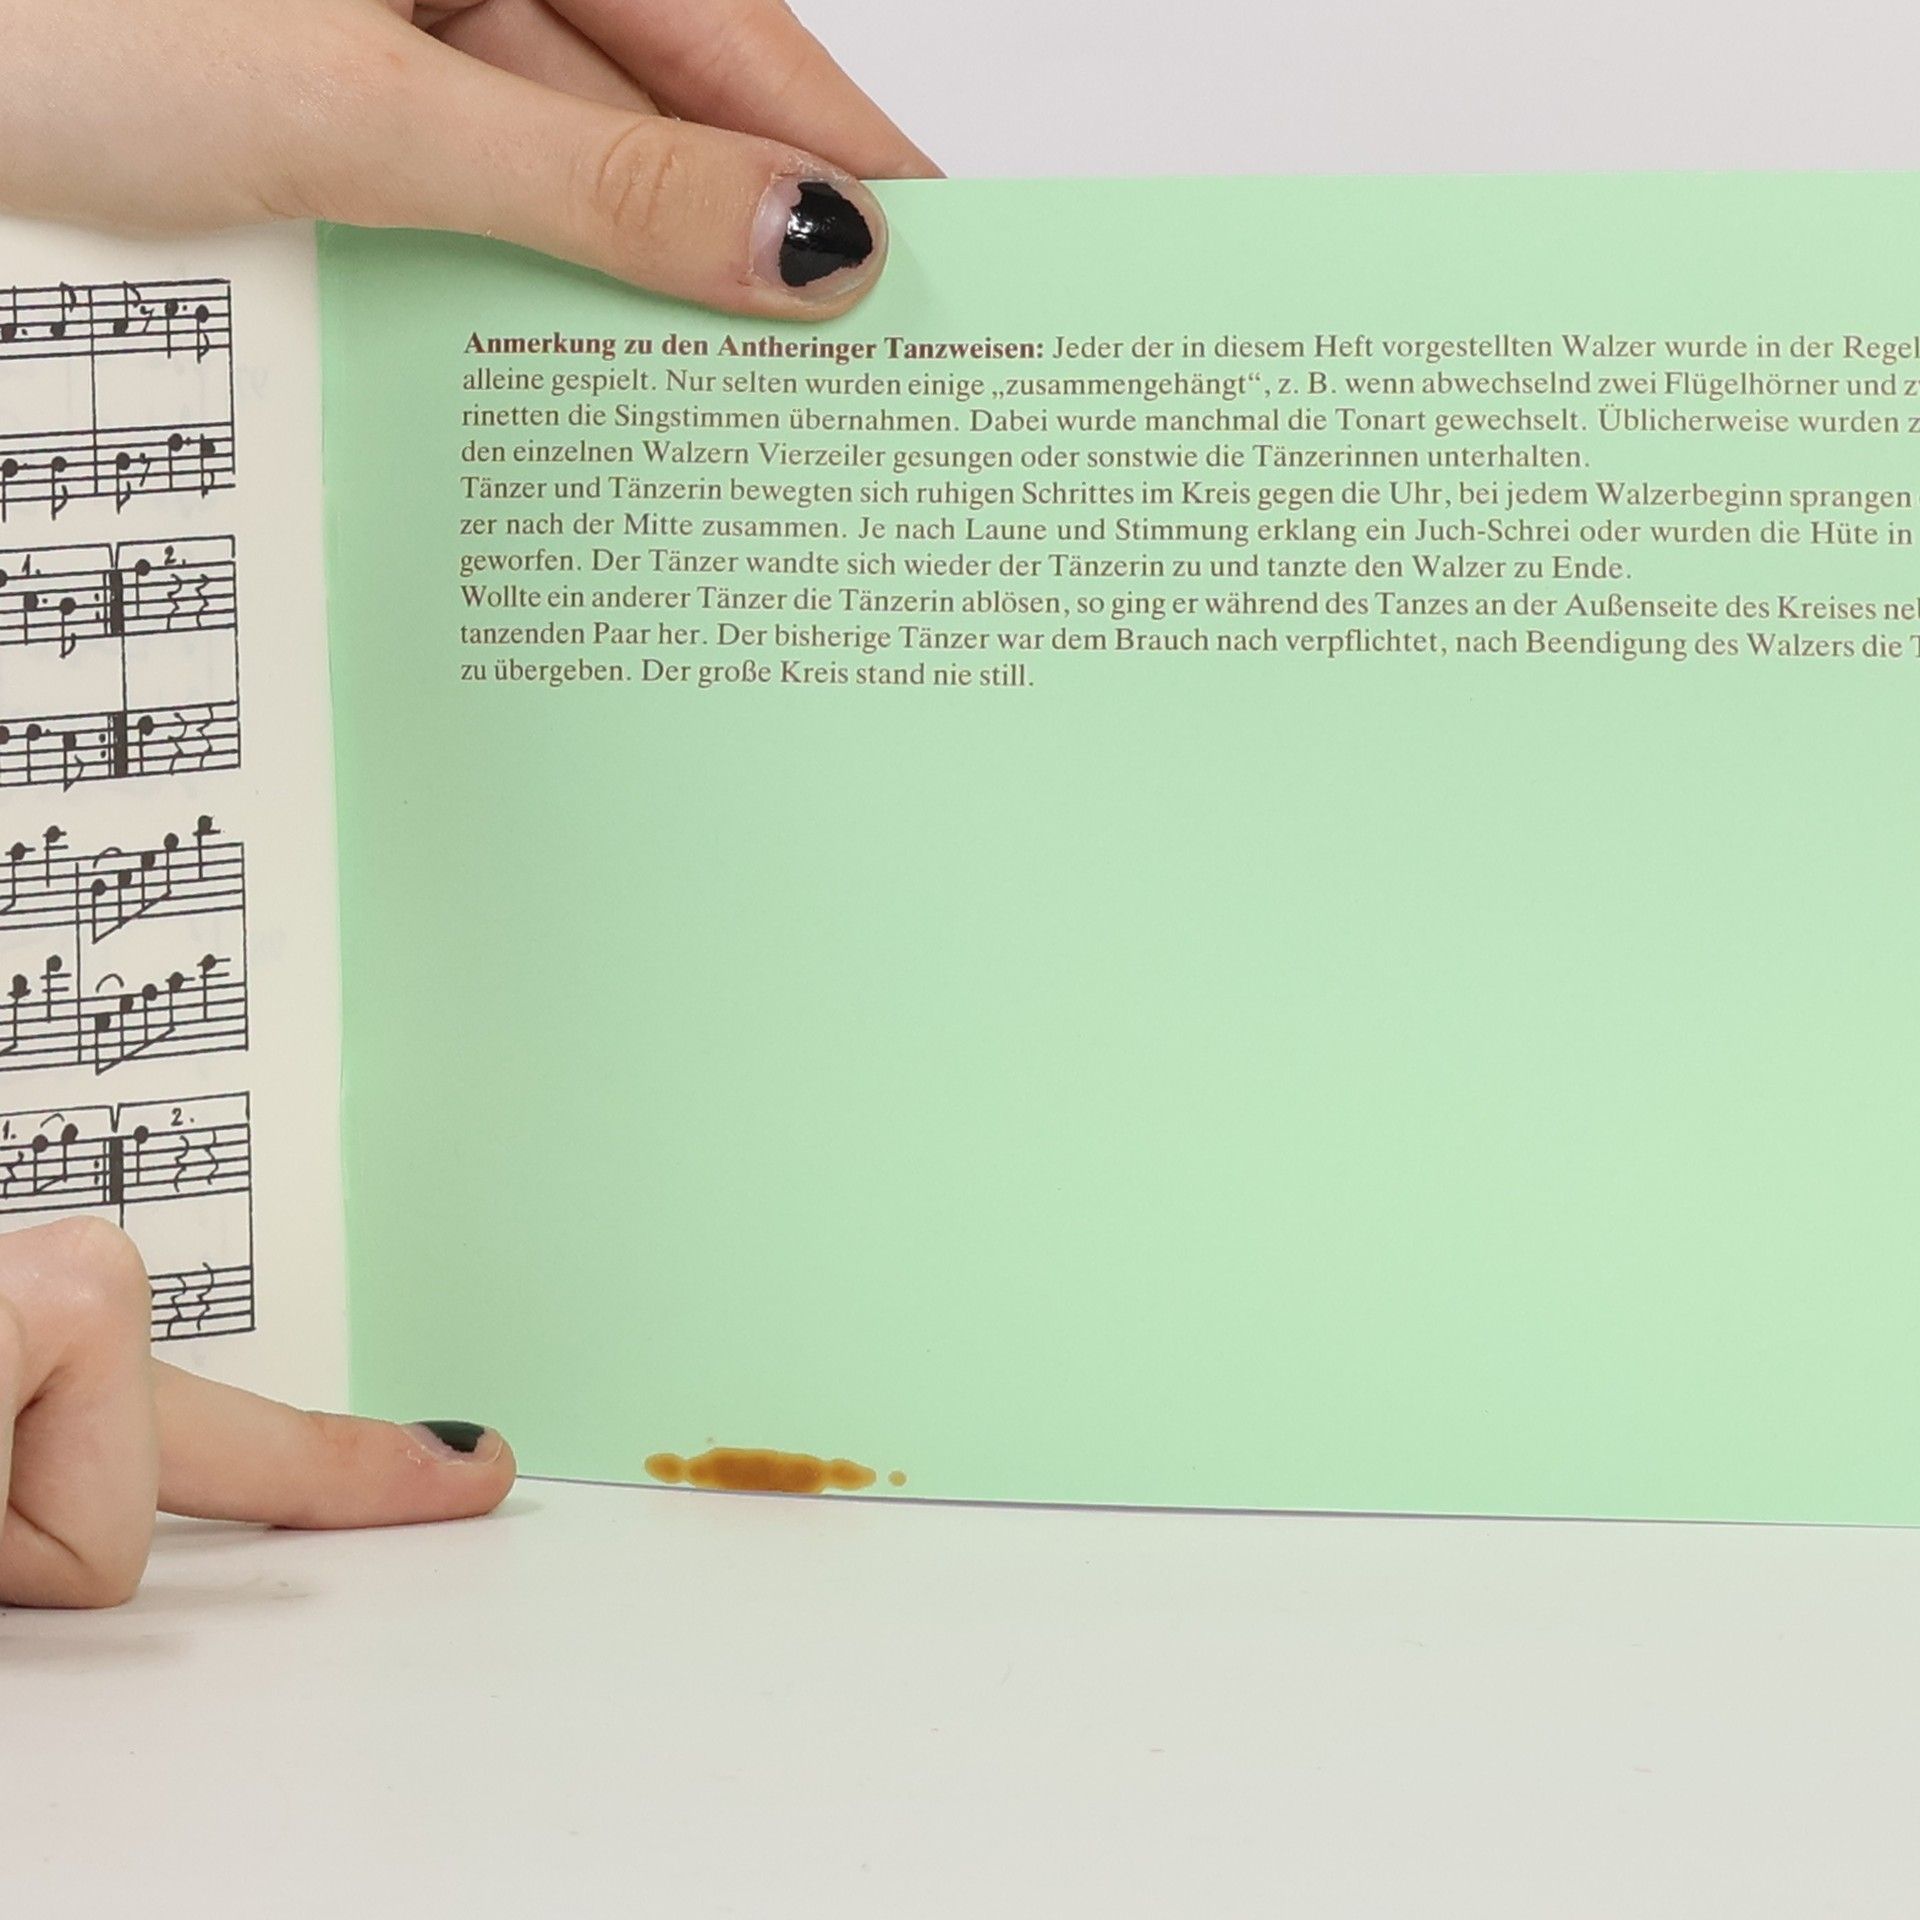 Anmerkung zu den Antheringer Tanzweisen: Jeder der in diesem Heft vorgestellten Walzer wurde in der Regel
alleine gespielt. Nur selten wurden einige „zusammengehängt“, z. B. wenn abwechselnd zwei Flügelhörner und
rinetten die Singstimmen übernahmen. Dabei wurde manchmal die Tonart gewechselt. Üblicherweise wurden
den einzelnen Walzern Vierzeiler gesungen oder sonstwie die Tänzerinnen unterhalten.
Tänzer und Tänzerin bewegten sich ruhigen Schrittes im Kreis gegen die Uhr, bei jedem Walzerbeginn sprangen
zer nach der Mitte zusammen. Je nach Laune und Stimmung erklang ein Juch-Schrei oder wurden die Hüte in
geworfen. Der Tänzer wandte sich wieder der Tänzerin zu und tanzte den Walzer zu Ende.
Wollte ein anderer Tänzer die Tänzerin ablösen, so ging er während des Tanzes an der Außenseite des Kreises
tanzenden Paar her. Der bisherige Tänzer war dem Brauch nach verpflichtet, nach Beendigung des Walzers die
zu übergeben. Der große Kreis stand nie still.
1. 2.
1. 2.